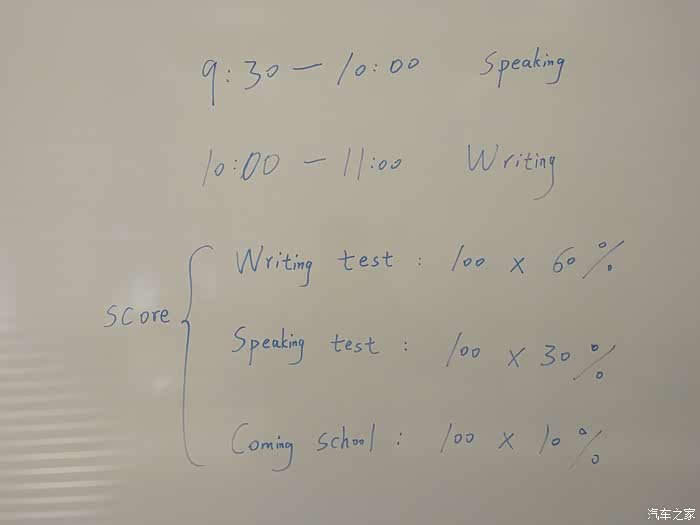 9:30 — 10:00 Speaking
10:00 — 11:00 Writing
Writing test : 100 x 60%
score
Speaking test : 100 x 30%
Coming school : 100 x 10%
汽车之家